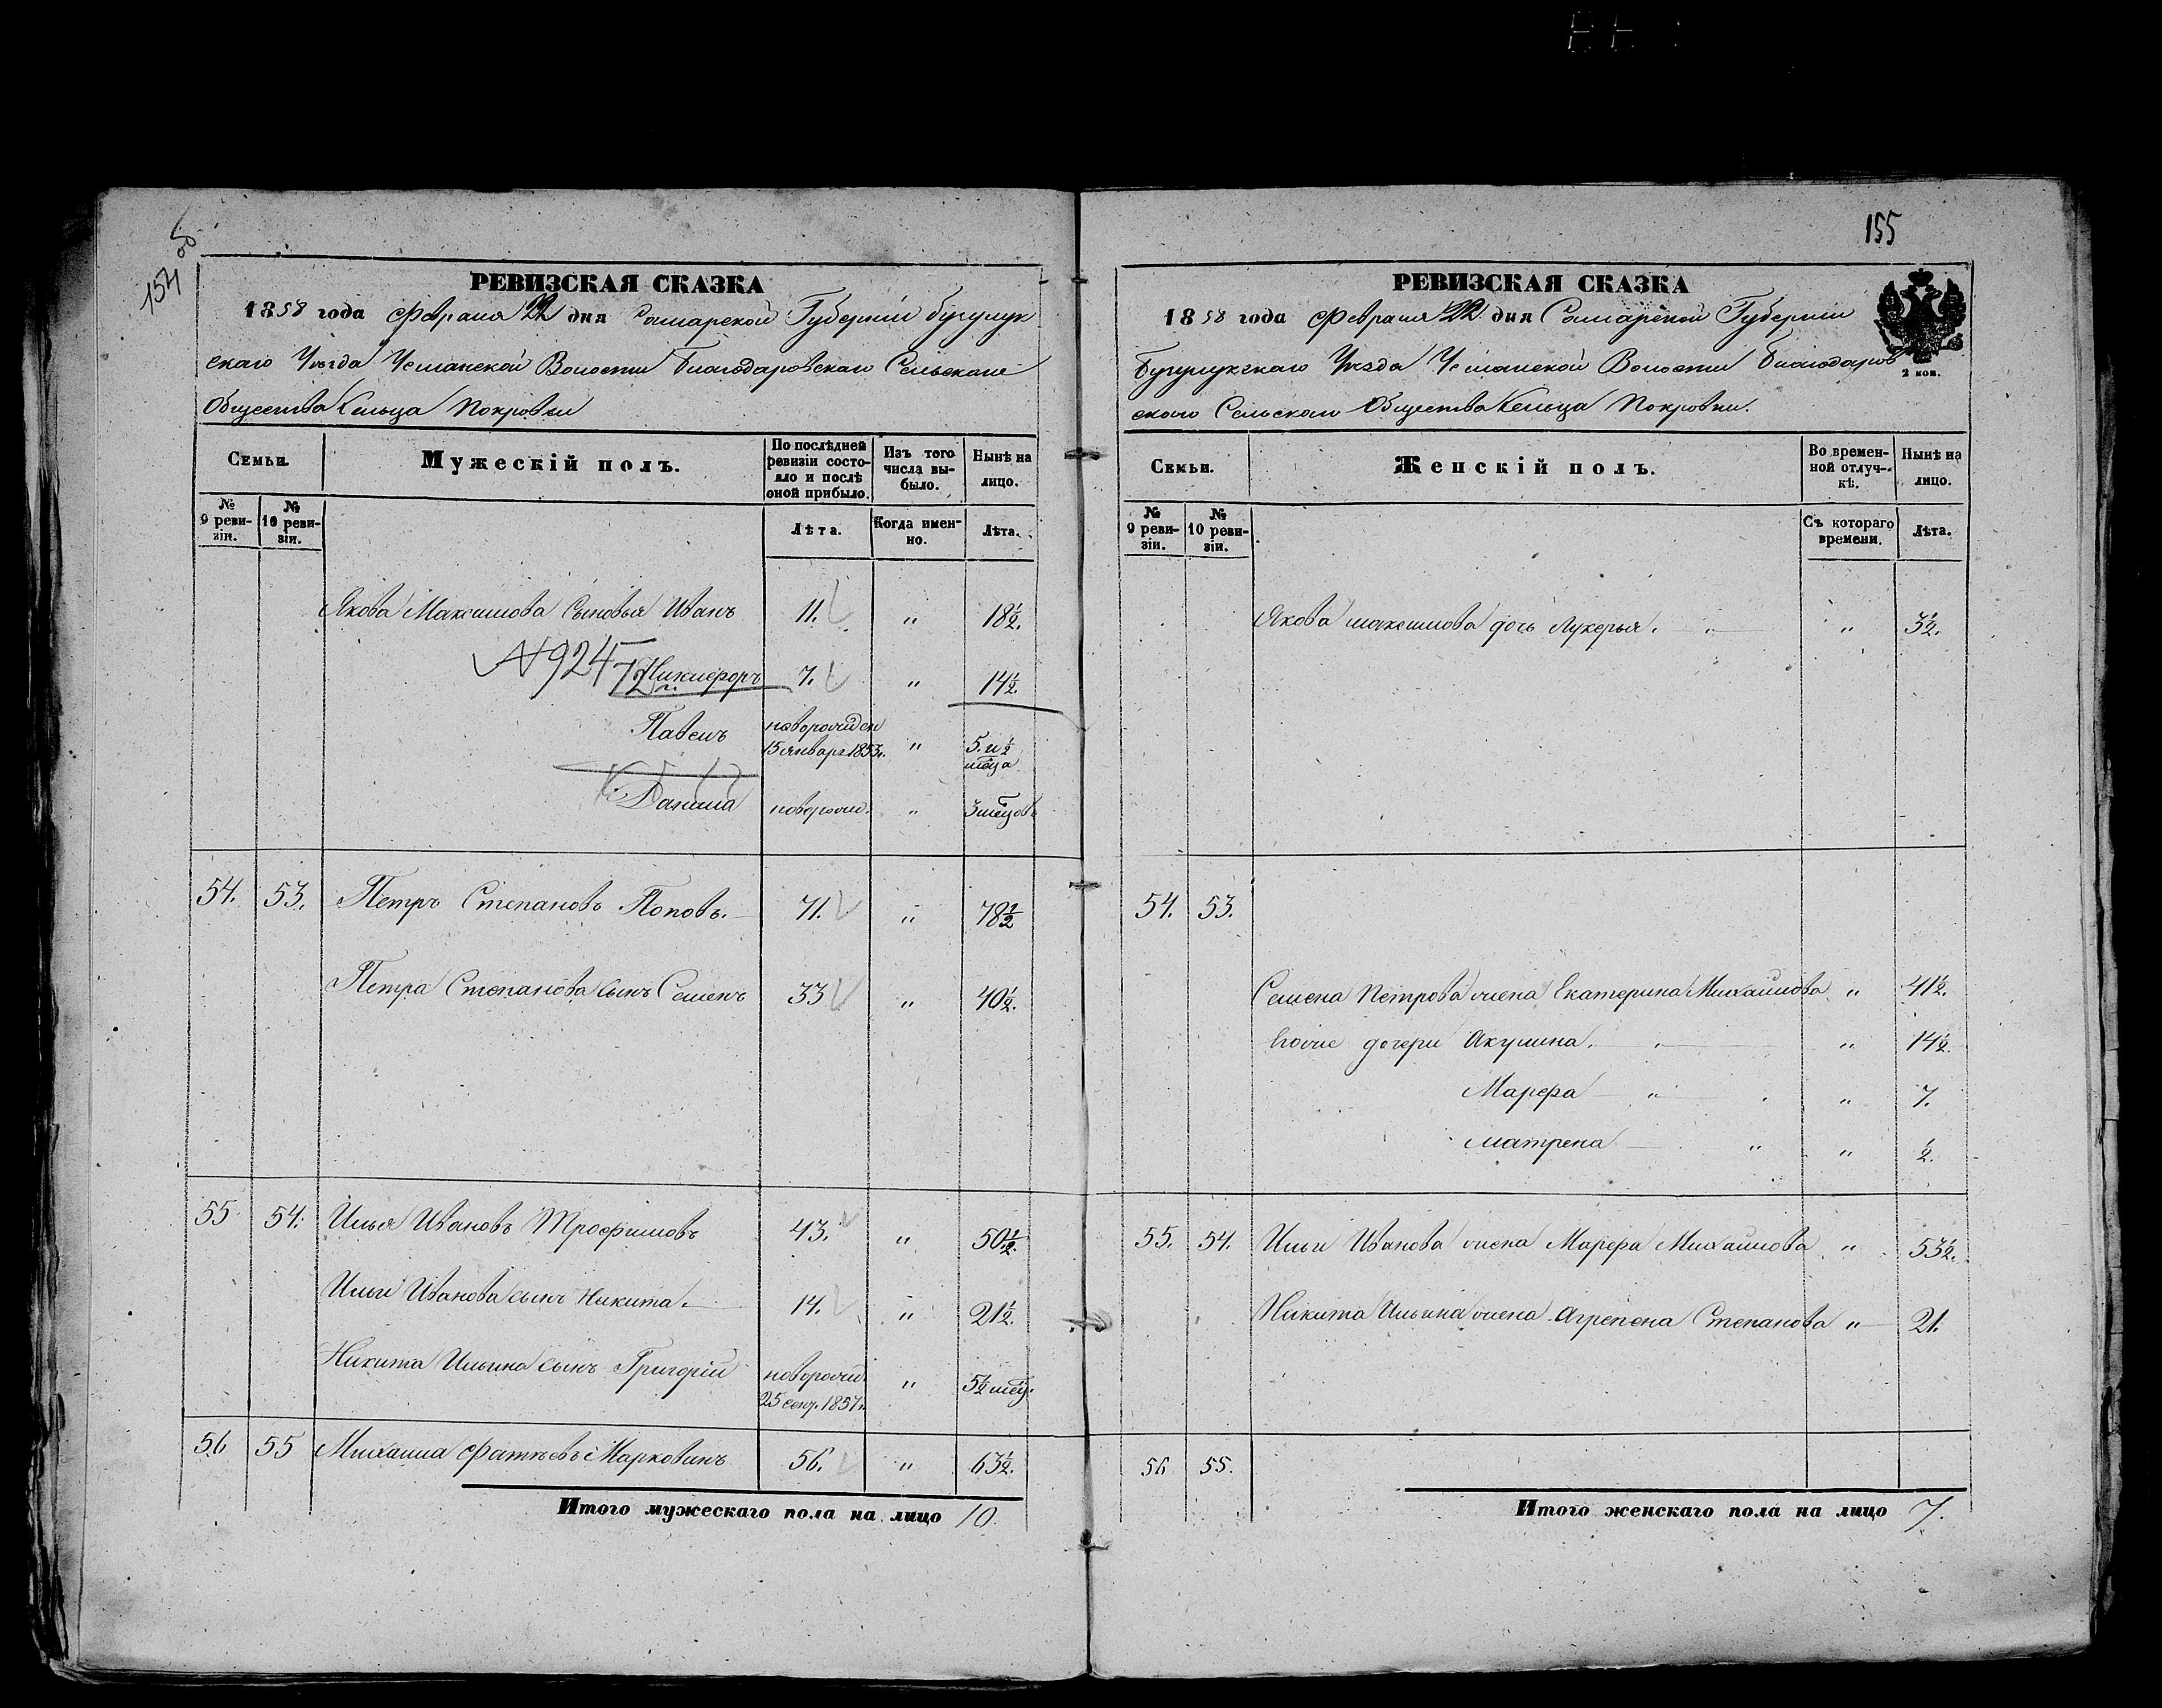 154 об
РЕВИЗСКАЯ СКАЗКА
1858 года Февраля 22 дня Самарской Губерніи Бугурук
скаго Уѣзда Команской Волости Благодаровскаго Сельскаго
Общества Сельца Покровки
Семьи.
Мужескій полъ.
По послѣдней ревизіи состояло и послѣ оной прибыло.
Изъ того числа выбыло.
Нынѣ на лицо.
№ 9 ревизіи.
№ 10 ревизіи.
Лѣта.
Когда именно.
Лѣта.
Якова Максимова сыновья Иванъ 11. " 18½.
№924
72 Никифоръ 7. " 14½.
Павелъ новорожден 15 января 1853г. " 5. и ½ мѣца
Данила новорожд. " 3 мѣцовъ
54. 53. Петръ Степановъ Поповъ. 71. " 78½
Петра Степанова сынъ Семенъ 33 " 40½.
55 54. Илья Ивановъ Трофимовъ 43. " 50½.
Ильи Иванова сынъ Никита. 14. " 21½.
Никита Ильина сынъ Григорій новорожд. 25 сент. 1857г. " 5½ мѣц.
56 55 Михаила Фатѣевъ Марковинъ 56. " 63½.
Итого мужескаго пола на лицо 10.
155
РЕВИЗСКАЯ СКАЗКА
1858 года Февраля 22 дня Самарской Губерніи
Волости Благодаров
2 коп.
скаго Сельскаго Общества Сельца Покровки.
Семьи.
Женскій полъ.
Во временной отлучкѣ.
Нынѣ на лицо.
№ 9 ревизіи.
№ 10 ревизіи.
Съ котораго времени.
Лѣта.
Якова Максимова дочь Лукерья. " " 3½.
54. 53.
Семена Петрова жена Екатерина Михайлова " 41½.
Ихъ дочери Акулина. " " 14½.
Марфа " " 7.
Матрена " " ½.
55. 54. Ильи Иванова жена Марфа Михайлова " 53½.
Никита Ильина жена Агрепена Степанова " 21.
56 55.
Итого женскаго пола на лицо 7.